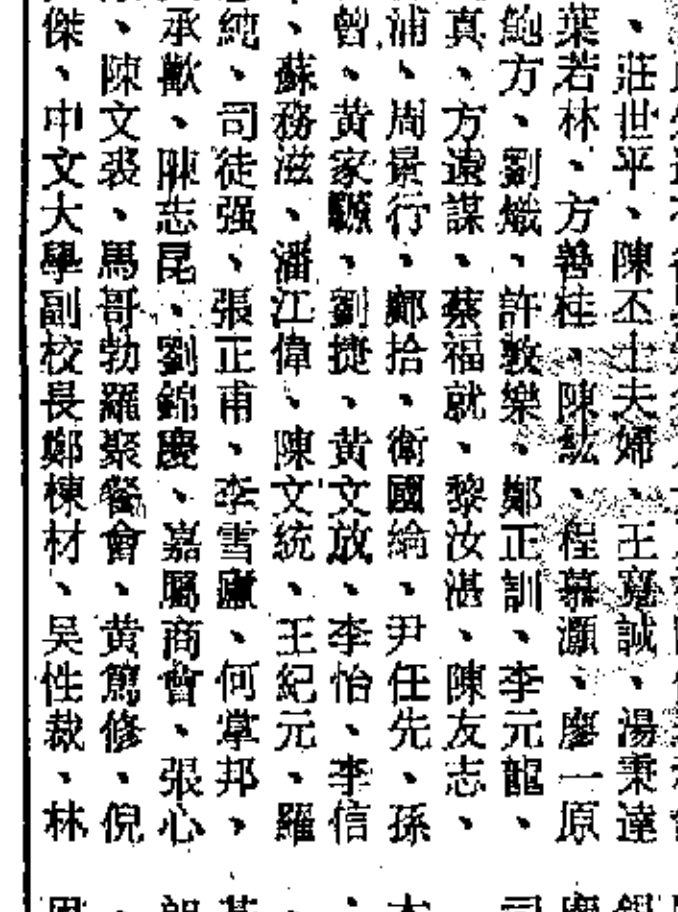 、莊世平、陳丕士夫婦、王寬誠、湯秉達
葉若林、方善桂、陳紘、程慕灝、廖一原
鮑方、劉熾、許敦樂、鄭正訓、李元龍、
真、方遠謀、蔡福就、黎汝湛、陳友志、
浦、周景行、鄭拾、衛國綸、尹任先、孫
曾、黃家驥、劉捷、黃文放、李怡、李信
、蘇務滋、潘江偉、陳文統、王紀元、羅
純、司徒强、張正甫、李雪廬、何掌邦、
承歡、陳志昆、劉錦慶、嘉屬商會、張心
、陳文裘、馬哥勃羅聚餐會、黃篤修、倪
傑、中文大學副校長鄭棟材、吴性裁、林